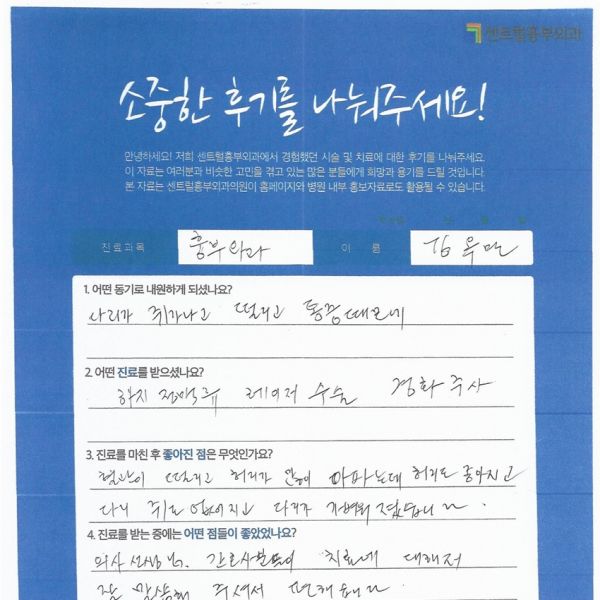 센트럴흉부외과
소중한 후기를 나눠주세요!
안녕하세요! 저희 센트럴흉부외과에서 경험했던 시술 및 치료에 대한 후기를 나눠주세요.
이 자료는 여러분과 비슷한 고민을 겪고 있는 많은 분들에게 희망과 용기를 드릴 것입니다.
본 자료는 센트럴흉부외과의원이 홈페이지와 병원 내부 홍보자료로도 활용될 수 있습니다.
진료과목 흉부외과 이 름 김
1. 어떤 동기로 내원하게 되셨나요?
다리가 쥐가나고 떨리고 통증때문에
2. 어떤 진료를 받으셨나요?
하지 정맥류 레이저 수술 경화 주사
3. 진료를 마친 후 좋아진 점은 무엇인가요?
떨리고 허리가 아파는데 허리도 좋아지고
다리 쥐도 없어지고 다리가 가벼워 졌습니다.
4. 진료를 받는 중에는 어떤 점들이 좋았었나요?
의사 선생님. 간호사분들이 치료에 대해서
잘 말씀해 주셔서 편해습니다.